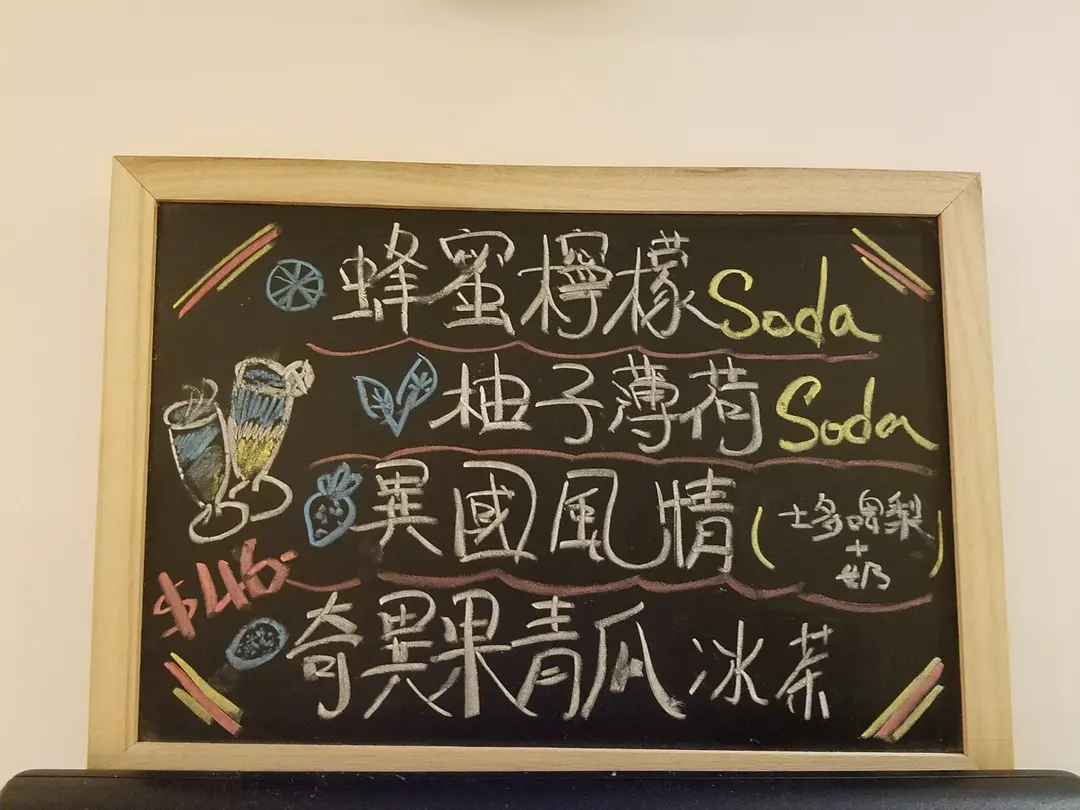 蜂蜜檸檬Soda
柚子薄荷Soda
異國風情(士多啤梨
+
奶)
$46.-
奇異果青瓜冰茶